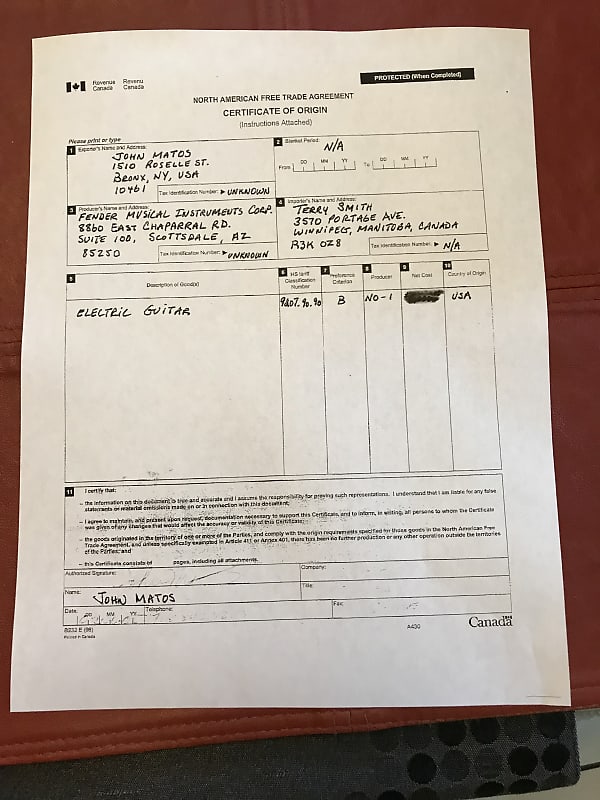 Revenue Canada Revenu Canada
PROTECTED (When Completed)
NORTH AMERICAN FREE TRADE AGREEMENT
CERTIFICATE OF ORIGIN
(Instructions Attached)
Please print or type
1 Exporter's Name and Address:
JOHN MATOS
1510 ROSELLE ST.
BRONX, NY, USA
10461
Tax Identification Number: ▶ UNKNOWN
2 Blanket Period:
N/A
From DD MM YY To DD MM YY
3 Producer's Name and Address:
FENDER MUSICAL INSTRUMENTS CORP.
8860 EAST CHAPARRAL RD.
SUITE 100, SCOTTSDALE, AZ
85250
Tax Identification Number: ▶ UNKNOWN
4 Importer's Name and Address:
TERRY SMITH
3570 PORTAGE AVE.
WINNIPEG, MANITOBA, CANADA
R3K 0Z8
Tax Identification Number: ▶ N/A
5 Description of Good(s)
6 HS Tariff Classification Number
7 Preference Criterion
8 Producer
9 Net Cost
10 Country of Origin
ELECTRIC GUITAR 9207.90.90 B NO-1 USA
11 I certify that:
– the information on this document is true and accurate and I assume the responsibility for proving such representations. I understand that I am liable for any false
statements or material omissions made on or in connection with this document;
– I agree to maintain, and present upon request, documentation necessary to support this Certificate, and to inform, in writing, all persons to whom the Certificate
was given of any changes that would affect the accuracy or validity of this Certificate;
– the goods originated in the territory of one or more of the Parties, and comply with the origin requirements specified for those goods in the North American Free
Trade Agreement, and unless specifically exempted in Article 411 or Annex 401, there has been no further production or any other operation outside the territories
of the Parties; and
– this Certificate consists of pages, including all attachments.
Authorized Signature:
Company:
Name:
JOHN MATOS
Title:
Date: DD MM YY
Telephone:
Fax:
B232 E (96)
Printed in Canada
A430
Canada